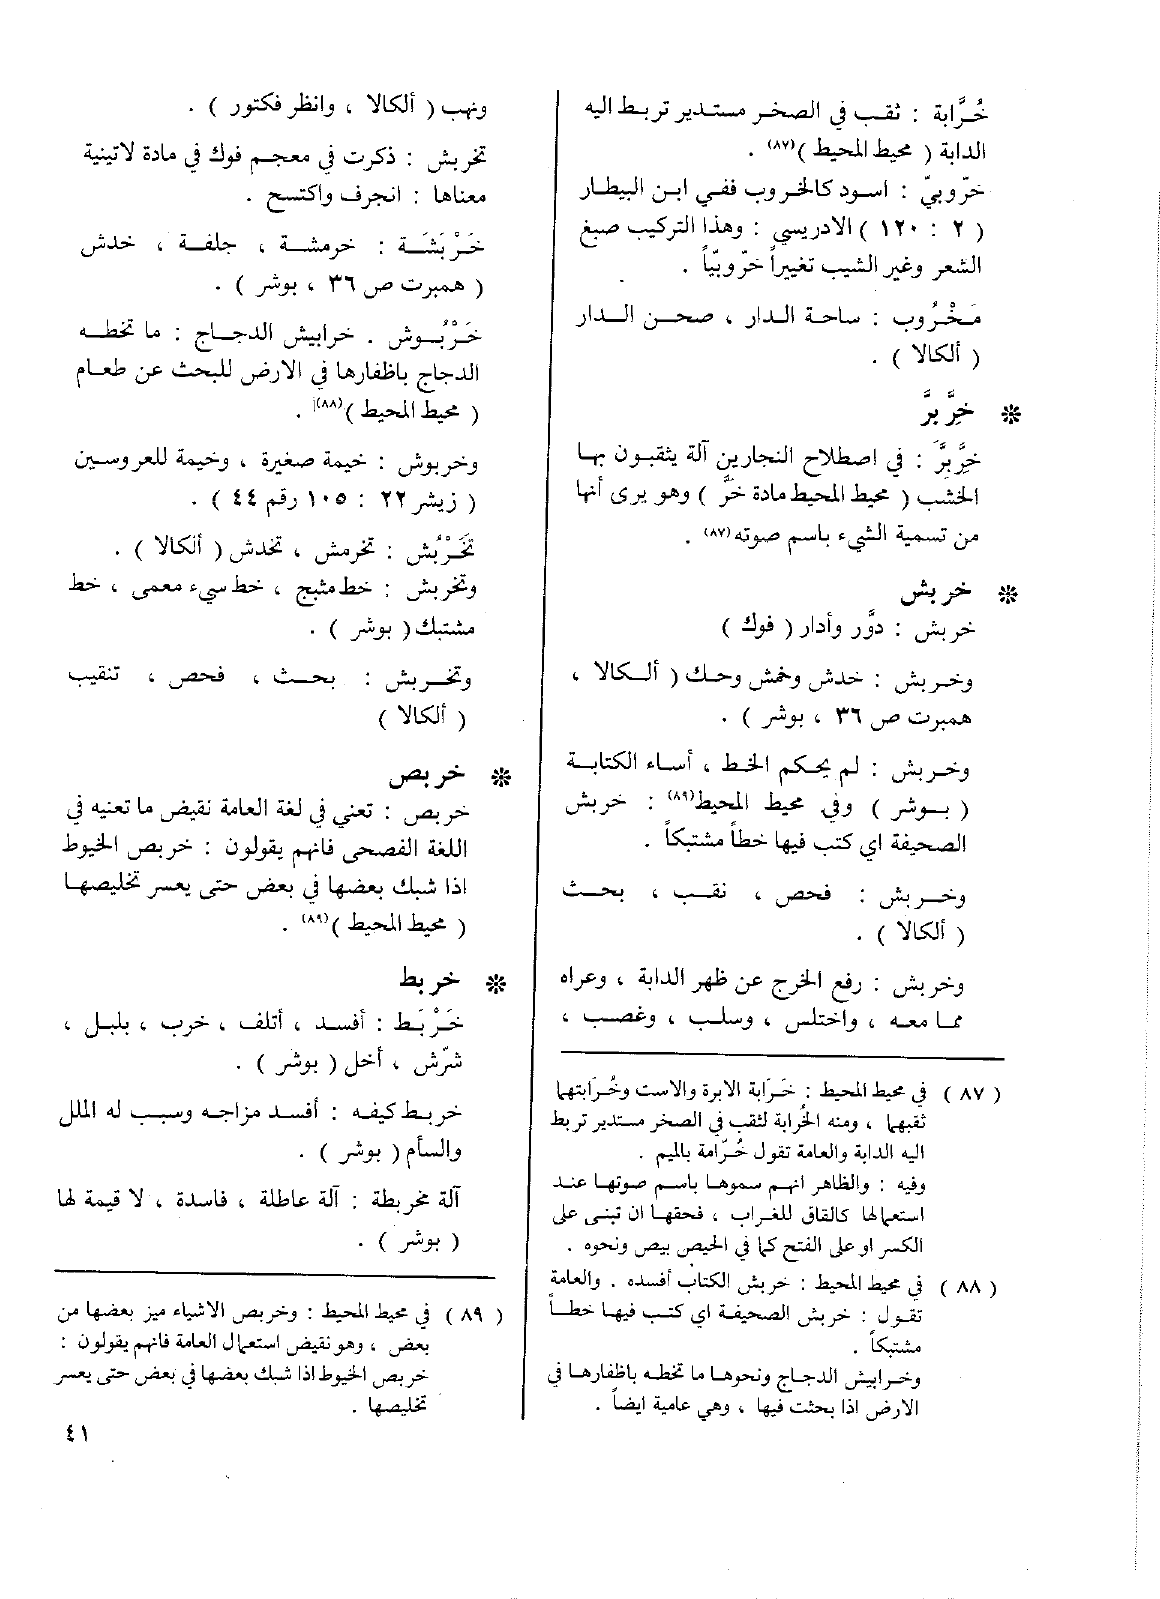 خُرَّابة : ثقب في الصخر مستدير تربط اليه
الدابة ( محيط المحيط )(٨٧) .
خرّوبيّ : اسود كالخروب ففي ابن البيطار
( ٢ : ١٢٠ ) الادريسي : وهذا التركيب صبغ
الشعر وغير الشيب تغييراً خرّوبيّاً .
مَخْرُوب : ساحة الدار ، صحن الدار
( ألكالا ) .
* خَرَّبَرَّ
خِرَّبَرَّ : في اصطلاح النجارين آلة يثقبون بها
الخشب ( محيط المحيط مادة خرّ ) وهو يرى أنها
من تسمية الشيء باسم صوته(٨٧) .
* خربش
خربش : دوَّر وأدار ( فوك )
وخربش : خدش وخمش وحك ( ألكالا ،
همبرت ص ٣٦ ، بوشر ) .
وخربش : لم يحكم الخط ، أساء الكتابة
( بوشر ) وفي محيط المحيط(٨٩) : خربش
الصحيفة اي كتب فيها خطاً مشتبكاً .
وخربش : فحص ، نقب ، بحث
( ألكالا ) .
وخربش : رفع الخرج عن ظهر الدابة ، وعراه
مما معه ، واختلس ، وسلب ، وغصب ،
( ٨٧ ) في محيط المحيط : خَرَابة الابرة والاست وخُرَابتها
ثقبها ، ومنه الخُرابة لثقب في الصخر مستدير تربط
اليه الدابة والعامة تقول خُرّامة بالميم .
وفيه : والظاهر انهم سموها باسم صوتها عند
استعمالها كالقاق للغراب ، فحقها ان تبنى على
الكسر او على الفتح كما في الحيص بيص ونحوه .
( ٨٨ ) في محيط المحيط : خربش الكتاب أفسده . والعامة
تقول : خربش الصحيفة اي كتب فيها خطاً
مشتبكاً .
وخرابيش الدجاج ونحوها ما تخطه باظفارها في
الارض اذا بحثت فيها ، وهي عامية ايضاً .
ونهب ( ألكالا ، وانظر فكتور ) .
تخربش : ذكرت في معجم فوك في مادة لاتينية
معناها : انجرف واكتسح .
خَرْبَشَة : خرمشة ، جلفة ، خدش
( همبرت ص ٣٦ ، بوشر ) .
خَرْبُوش . خرابيش الدجاج : ما تخطه
الدجاج باظفارها في الارض للبحث عن طعام
( محيط المحيط )(٨٨) .
وخربوش : خيمة صغيرة ، وخيمة للعروسين
( زيشر ٢٢ : ١٠٥ رقم ٤٤ ) .
تَخَرْبُش : تخرمش ، تخدش ( ألكالا ) .
وتخربش : خط مثبج ، خط سيء معمى ، خط
مشتبك ( بوشر ) .
وتخربش : بحث ، فحص ، تنقيب
( ألكالا )
* خربص
خربص : تعني في لغة العامة نقيض ما تعنيه في
اللغة الفصحى فانهم يقولون : خربص الخيوط
اذا شبك بعضها في بعض حتى يعسر تخليصها
( محيط المحيط )(٨٩) .
* خربط
خَرْبَط : أفسد ، أتلف ، خرب ، بلبل ،
شرّش ، أخل ( بوشر ) .
خربط كيفه : أفسد مزاجه وسبب له الملل
والسأم ( بوشر ) .
آلة مخربطة : آلة عاطلة ، فاسدة ، لا قيمة لها
( بوشر ) .
( ٨٩ ) في محيط المحيط : وخربص الاشياء ميز بعضها من
بعض ، وهو نقيض استعمال العامة فانهم يقولون :
خربص الخيوط اذا شبك بعضها في بعض حتى يعسر
تخليصها .
٤١